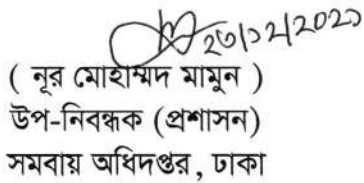 ২৩/১২/২০২১
( নূর মোহাম্মদ মামুন )
উপ-নিবন্ধক (প্রশাসন)
সমবায় অধিদপ্তর, ঢাকা